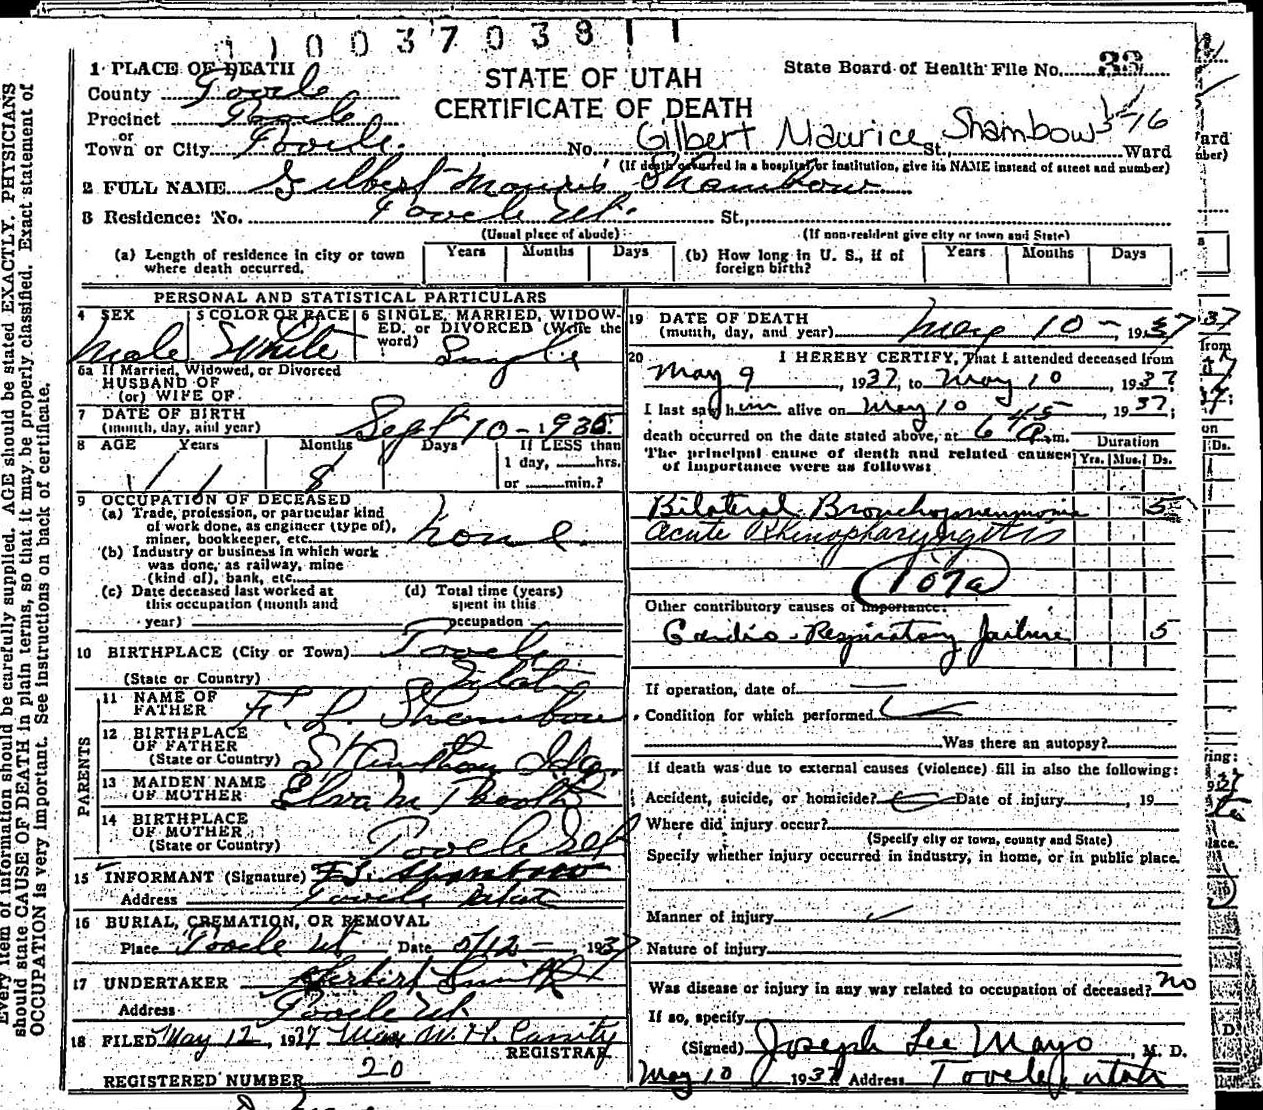 1 1 0 0 3 7 0 3 8 1 1
1 PLACE OF DEATH
County Tooele
Precinct Tooele
or
Town or City Tooele
STATE OF UTAH
CERTIFICATE OF DEATH
State Board of Health File No. 33
No. Gilbert Maurice Shambow St. Ward
(If death occurred in a hospital or institution, give its NAME instead of street and number)
2 FULL NAME Gilbert Mauris Shambow
3 Residence: No. Tooele Ut. St.,
(Usual place of abode) (If non-resident give city or town and State)
(a) Length of residence in city or town where death occurred. Years Months Days
(b) How long in U. S., if of foreign birth? Years Months Days
PERSONAL AND STATISTICAL PARTICULARS
4 SEX Male
5 COLOR OR RACE White
6 SINGLE, MARRIED, WIDOWED, or DIVORCED (Write the word) Single
6a If Married, Widowed, or Divorced
HUSBAND OF
(or) WIFE OF
7 DATE OF BIRTH
(month, day, and year) Sept 10 - 1935
8 AGE Years 1 Months 8 Days If LESS than
1 day, hrs.
or min.?
9 OCCUPATION OF DECEASED
(a) Trade, profession, or particular kind of work done, as engineer (type of), miner, bookkeeper, etc. none
(b) Industry or business in which work was done, as railway, mine (kind of), bank, etc.
(c) Date deceased last worked at this occupation (month and year)
(d) Total time (years) spent in this occupation
10 BIRTHPLACE (City or Town) Tooele
(State or Country) Utah
PARENTS
11 NAME OF FATHER F. L. Shambow
12 BIRTHPLACE OF FATHER
(State or Country)
13 MAIDEN NAME OF MOTHER Elva M
14 BIRTHPLACE OF MOTHER
(State or Country) Tooele Ut
15 INFORMANT (Signature) F. L. Shambow
Address Tooele Utah
16 BURIAL, CREMATION, OR REMOVAL
Place Tooele Ut Date 5/12 - 1937
17 UNDERTAKER Herbert Smith
Address Tooele Ut.
18 FILED May 12, 1937
REGISTRAR
REGISTERED NUMBER 20
19 DATE OF DEATH
(month, day, and year) May 10 - 1937
20 I HEREBY CERTIFY, That I attended deceased from
May 9, 1937, to May 10, 1937.
I last saw him alive on May 10, 1937;
death occurred on the date stated above, at 6 45 P.m.
The principal cause of death and related causes of importance were as follows:
Duration
Yrs. Mos. Ds.
Bilateral Bronchopneumonia 5
Acute Rhinopharyngitis
107a
Other contributory causes of importance:
Cardio-Respiratory failure 5
If operation, date of
Condition for which performed
Was there an autopsy?
If death was due to external causes (violence) fill in also the following:
Accident, suicide, or homicide? Date of injury , 19
Where did injury occur?
(Specify city or town, county and State)
Specify whether injury occurred in industry, in home, or in public place.
Manner of injury
Nature of injury
Was disease or injury in any way related to occupation of deceased? no
If so, specify
(Signed) Joseph Lee Mayo, M. D.
May 10 1937 Address Tooele, Utah
Every item of information should be carefully supplied. AGE should be stated EXACTLY. PHYSICIANS
should state CAUSE OF DEATH in plain terms, so that it may be properly classified. Exact statement of
OCCUPATION is very important. See instructions on back of certificate.